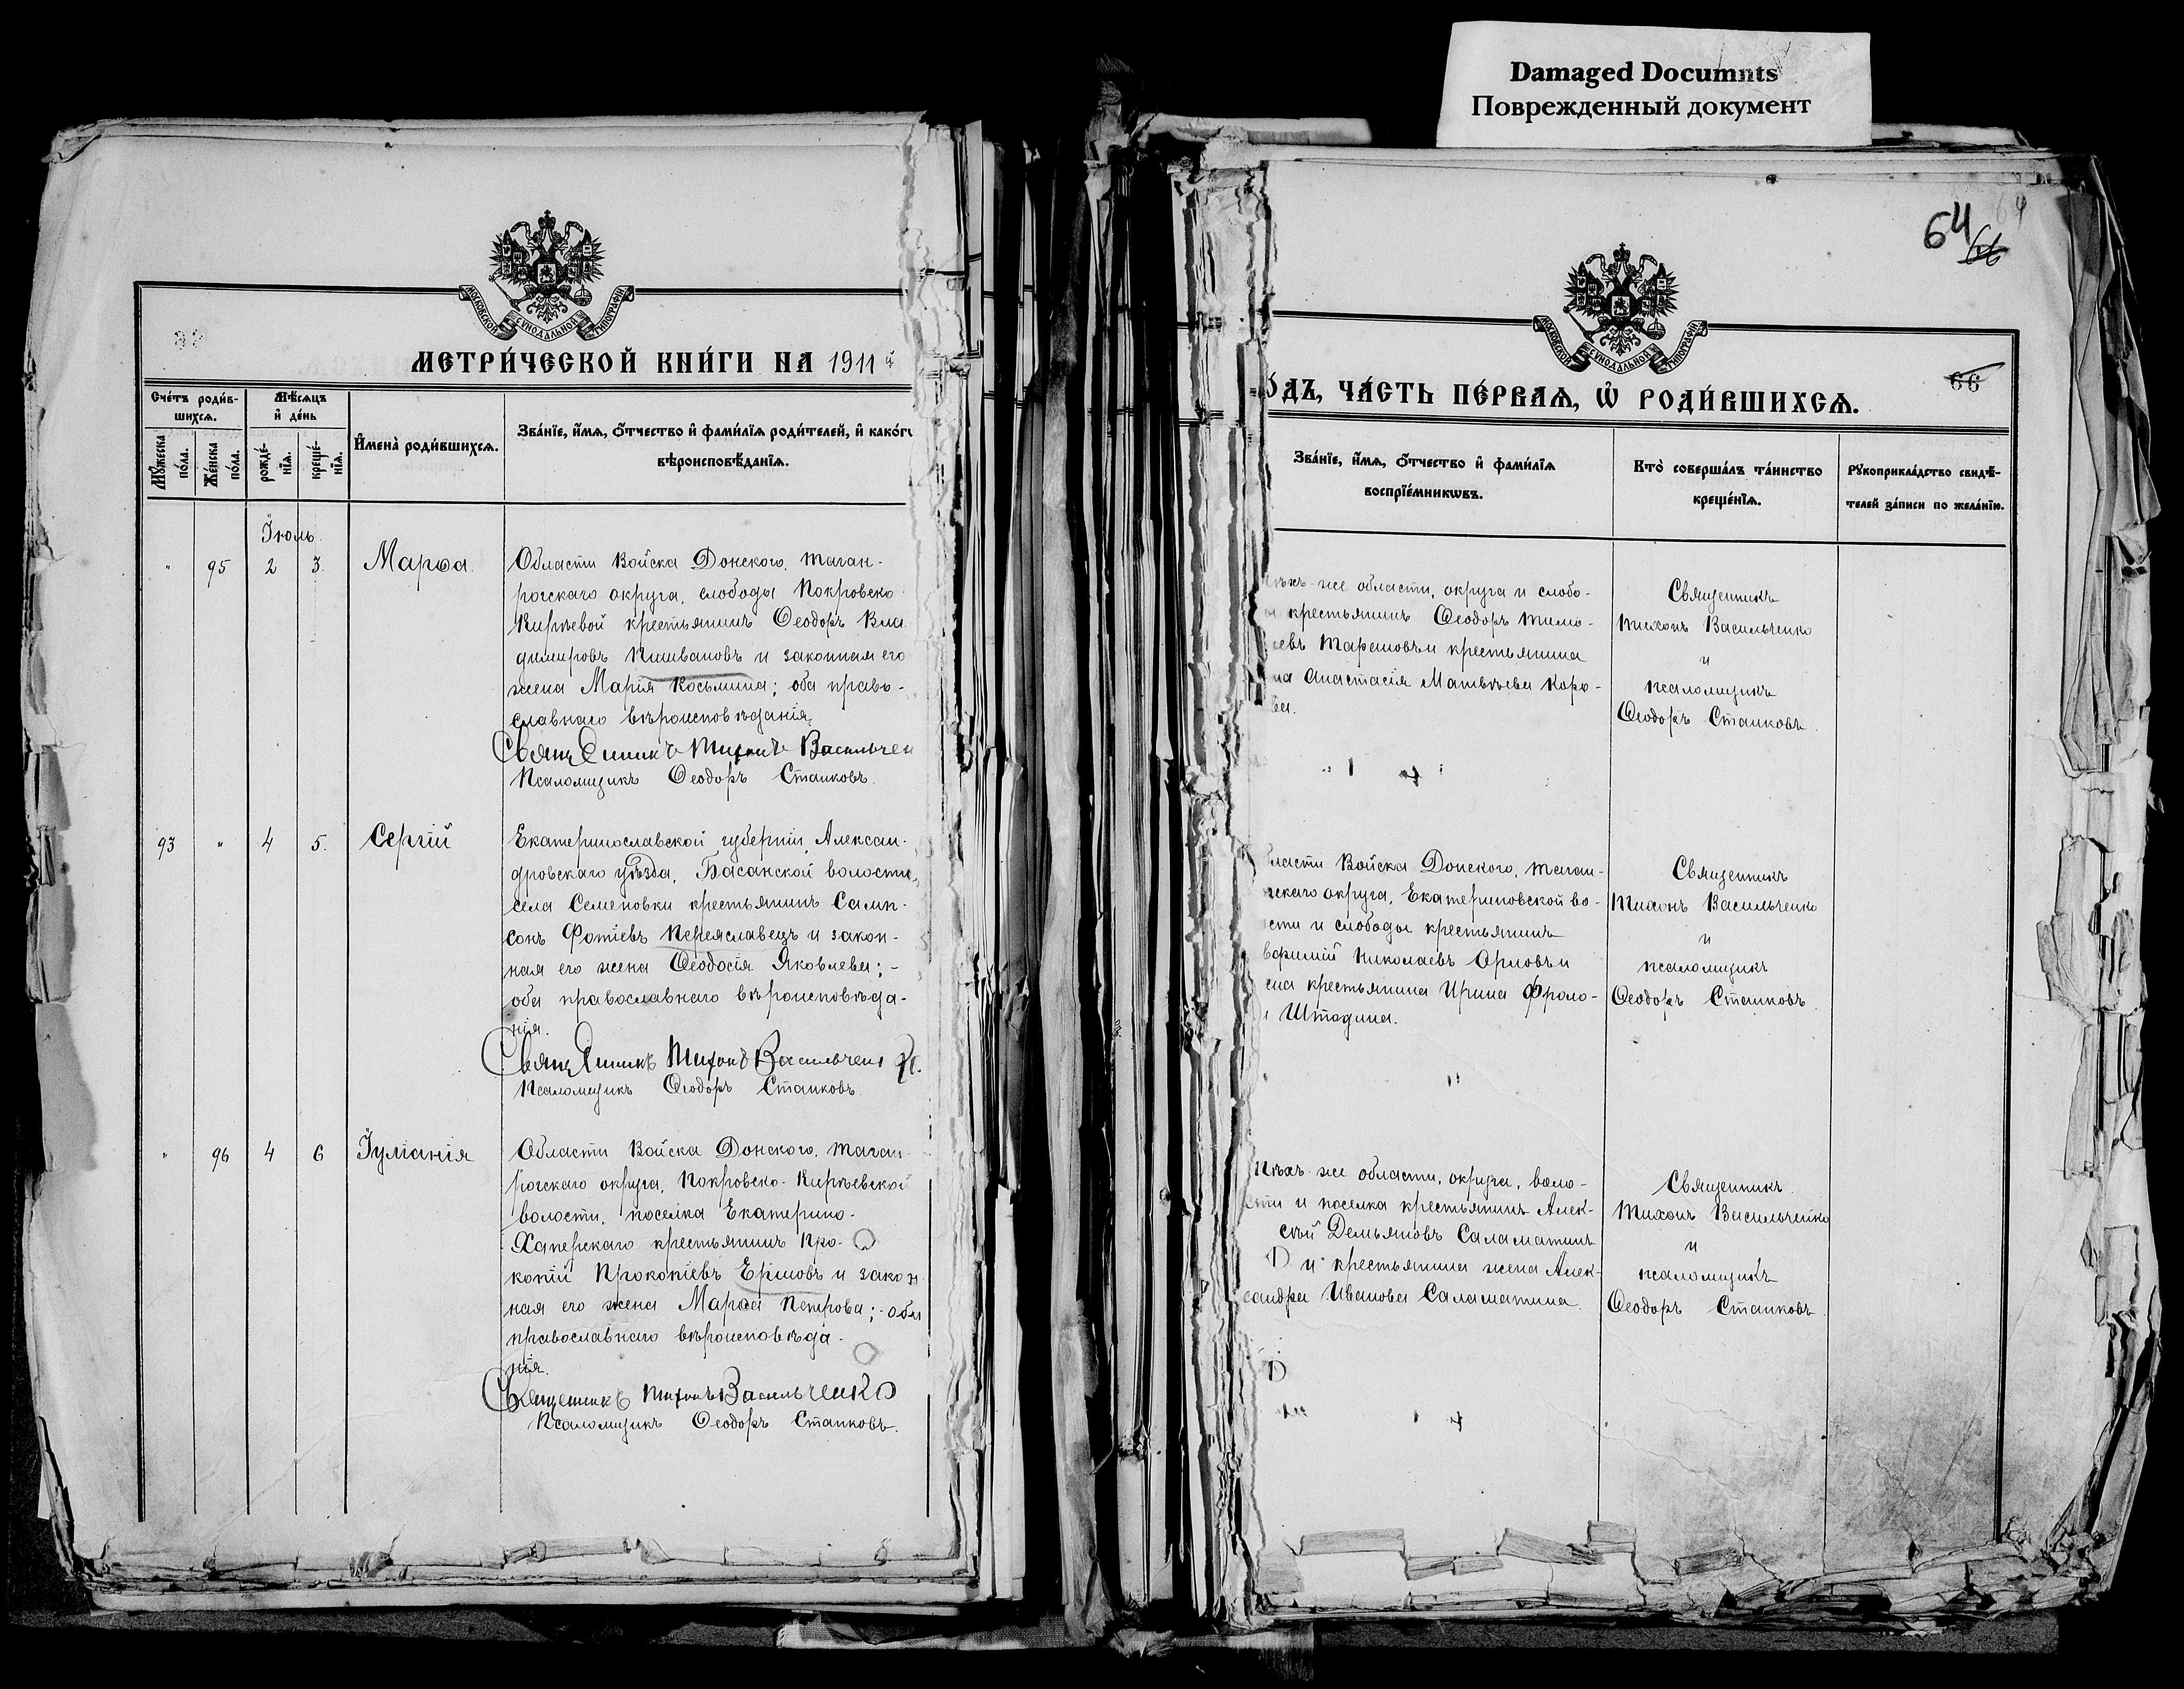 Damaged Documnts
Поврежденный документ
64
66
МОСКОВСКОЙ СѴНОДАЛЬНОЙ ТИПОГРАФІИ
МЕТРИ́ЧЕСКОЙ КНИ́ГИ НА 1911 й
Сче́тъ роди́в-
шихсѧ.
Мѣ́сѧцъ
и҆ де́нь
Мꙋ́жеска
по́ла.
Же́нска
по́ла.
рожде́-
нїѧ.
креще́-
нїѧ.
И҆мена̀ роди́вшихсѧ.
Зва́нїе, и҆́мѧ, ѻ҆́тчество и҆ фами́лїѧ роди́телей, и҆ како́гѡ
вѣроисповѣ́данїѧ.
Іюль.
" 95 2 3. Марѳа.
Области Войска Донского, Таган-
рогскаго округа, слободы Покровско
Кирѣевой крестьянинъ Ѳеодоръ Вла
димировъ Пишвановъ и законная его
жена Марія Косьмина; оба право-
славнаго вѣроисповѣданія.
Священникъ Тихонъ Васильчен
Псаломщикъ Ѳеодоръ Станковъ.
93 " 4 5. Сергій
Екатеринославской губерніи, Алексан-
дровскаго уѣзда, Басанской волости,
села Семеновки крестьянинъ Самп-
сонъ Фотіевъ Переяславецъ и закон-
ная его жена Ѳеодосія Яковлева; -
оба православнаго вѣроисповѣда-
нія.
Священникъ Тихонъ Васильчен
Псаломщикъ Ѳеодоръ Станковъ.
" 96 4 6 Іуліанія
Области Войска Донского, Таган-
рогскаго округа, Покровско-Кирѣевской
волости, поселка Екатерино-
Хаперскаго крестьянинъ Про-
копій Прокопіевъ Ершовъ и закон
ная его жена Марѳа Петрова; - оба
православнаго вѣроисповѣда-
нія.
Священникъ Тихонъ Васильченко
Псаломщикъ Ѳеодоръ Станковъ.
МОСКОВСКОЙ СѴНОДАЛЬНОЙ ТИПОГРАФІИ
66
О́ДЪ, ЧА́СТЬ ПЕ́РВАѦ, Ѡ҆ РОДИ́ВШИХСѦ.
Зва́нїе, и҆́мѧ, ѻ҆́тчество и҆ фами́лїѧ
воспрїе́мникѡвъ.
Кто̀ соверша́лъ та́инство
креще́нїѧ.
Рꙋкоприкла́дство свидѣ́-
телей за́писи по жела́нїю.
же области, округа и слобо-
крестьянинъ Ѳеодоръ Тимо-
евъ Тарановъ и крестьянина
на Анастасія Матвѣева Коро-
ва.
Священникъ
Тихонъ Васильченко
и
псаломщикъ
Ѳеодоръ Станковъ.
ласти Войска Донского, Таган-
скаго округа, Екатериновской во-
сти и слободы крестьянинъ
вфимій Николаевъ Орловъ и
ена крестьянина Ирина Фроло-
Штодина.
Священникъ
Тихонъ Васильченко
и
псаломщикъ
Ѳеодоръ Станковъ.
Тѣхъ же области, округа, воло-
сти и поселка крестьянинъ Алек-
сѣй Демьяновъ Саламатинъ
и крестьянина жена Алек-
сандра Иванова Саламатина.
Священникъ
Тихонъ Васильченко
и
псаломщикъ
Ѳеодоръ Станковъ.